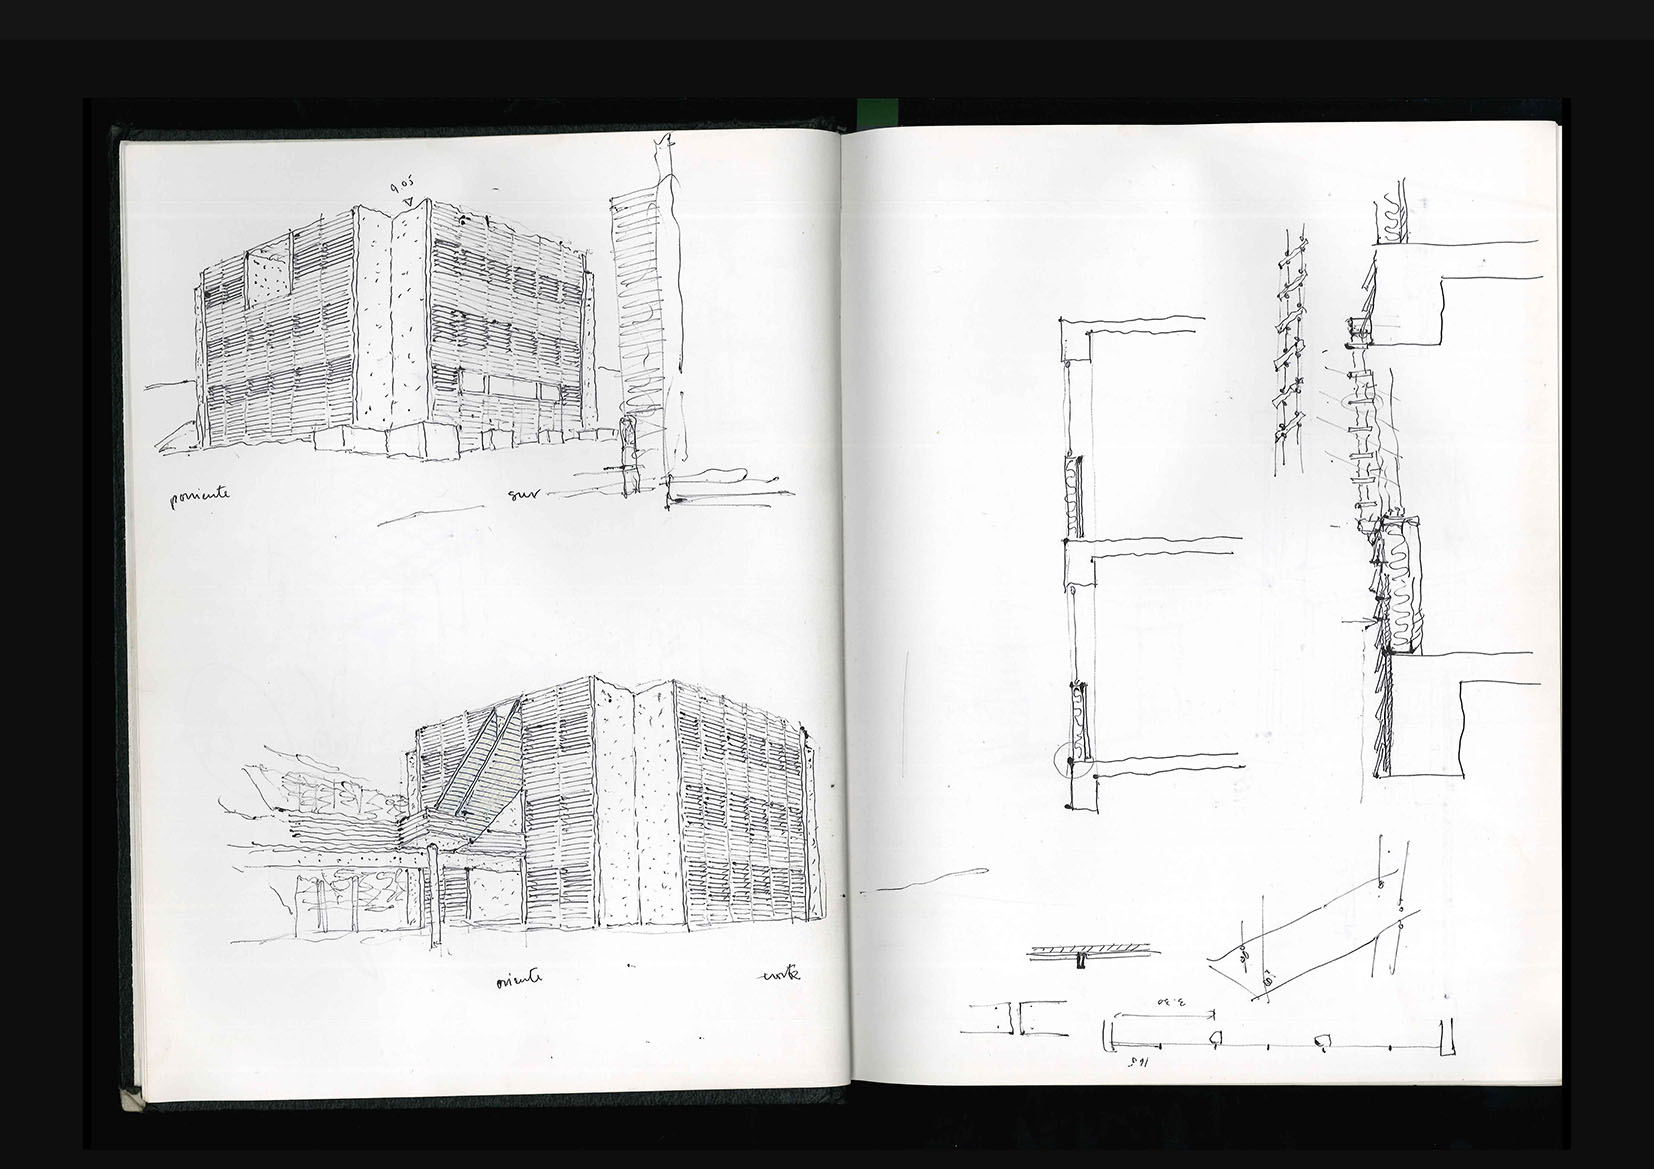 9.05
poniente
sur
oriente
norte
3.30
165